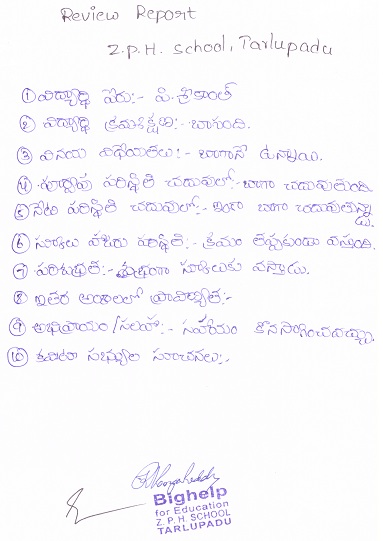 Review Report
Z.P.H. School, Tarlupadu
① విద్యార్థి పేరు:- పి. శ్రీకాంత్
② విద్యార్థి క్రమశిక్షణ:- బాగుంది.
③ వినయ విధేయతలు:- బాగానే ఉన్నాయి.
④ పూర్వపు పరిస్థితి చదువులో:- బాగా చదువుతుంది
⑤ నేటి పరిస్థితి చదువులో:- ఇంకా బాగా చదువుతున్నాడు.
⑥ స్కూలు హాజరు పరిస్థితి:- క్రమం తప్పకుండా వస్తుంది.
⑦ పరిశుభ్రత:- శుభ్రంగా స్కూలుకు వస్తాడు.
⑧ ఇతర అంశాలలో ప్రావీణ్యత:-
⑨ అభిప్రాయం/సలహా:- సహాయం కొనసాగించవచ్చు.
⑩ కమిటీ సభ్యుల సూచనలు:-
Bighelp
for Education
Z. P. H. SCHOOL
TARLUPADU